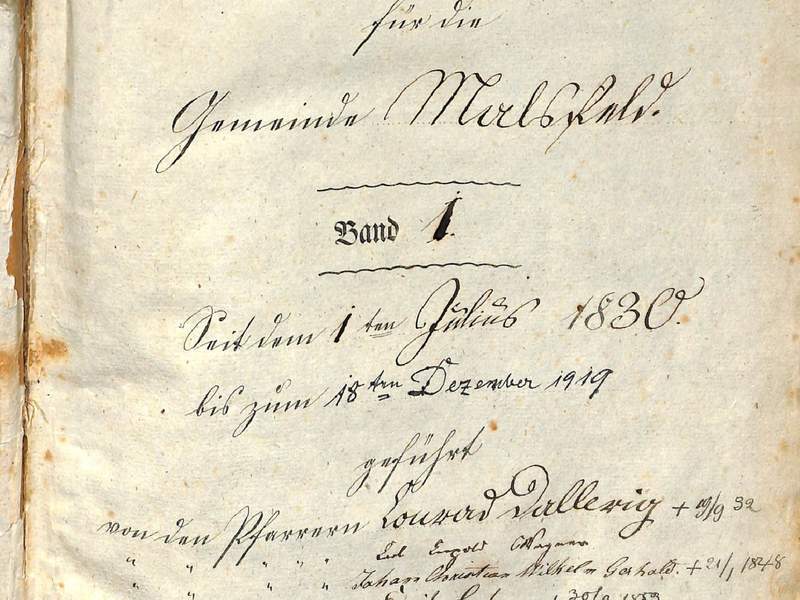 für die
Gemeinde Malsfeld.
Band 1
Seit dem 1ten Julius 1830.
bis zum 18ten Dezember 1919
geführt
von den Pfarrern Conrad Dallwig + 32
" " " " Wagner
" " " " Johann Christian Wilhelm + 21/1 1848